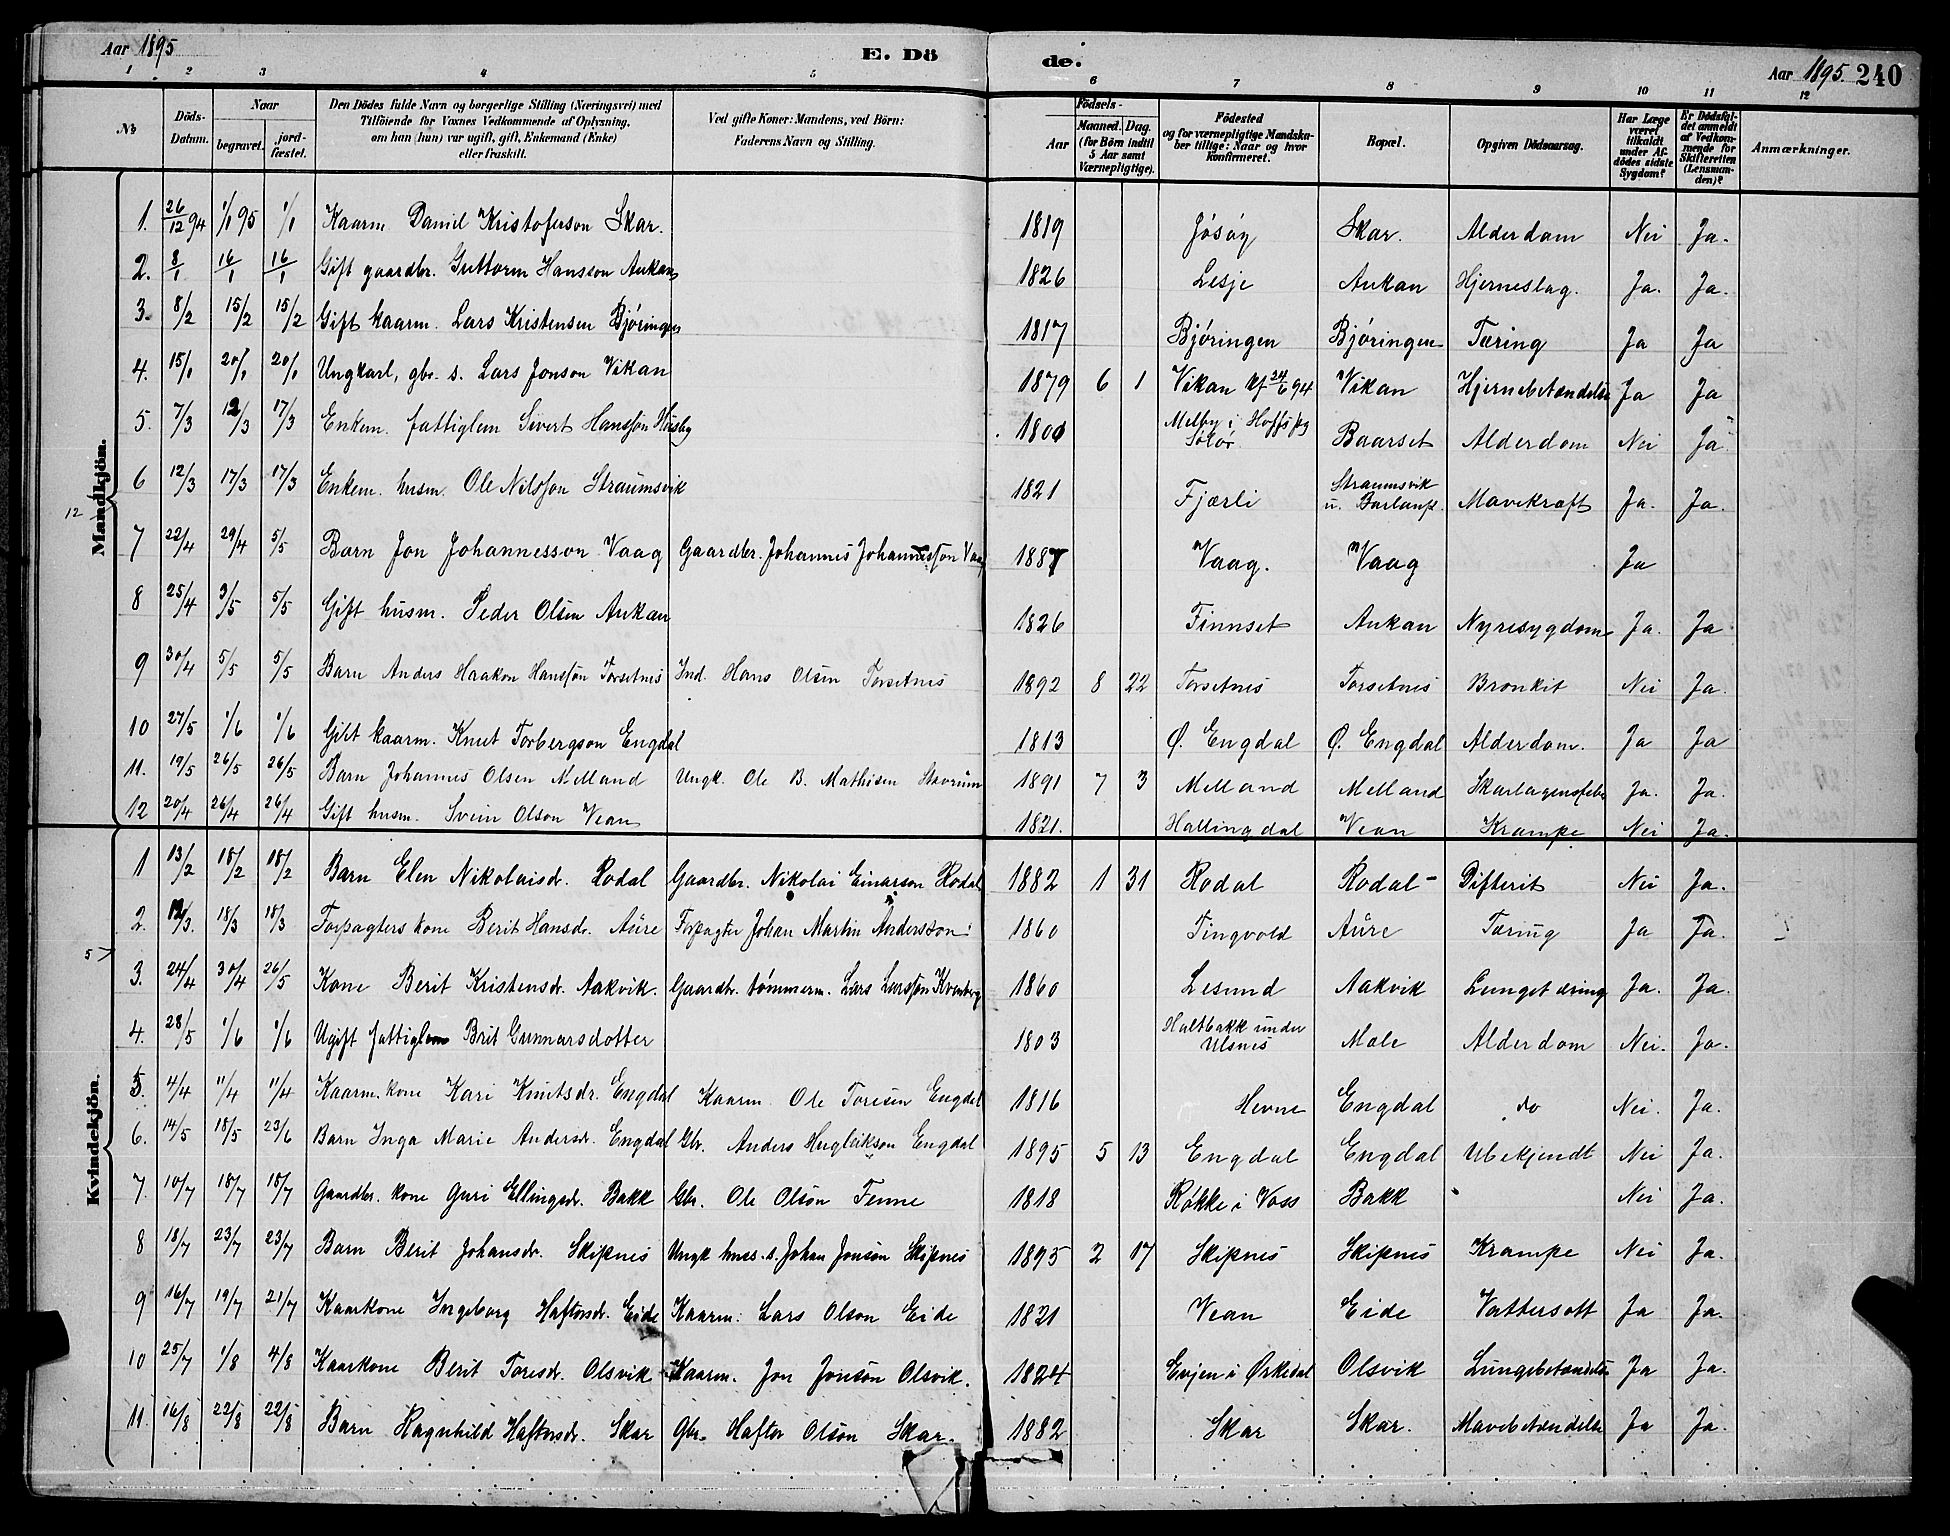 Aar 1895 E. Dö de. Aar 1895. 240
1 2 3 4 5 6 7 8 9 10 11 12
No
Döds-Datum.
Naar
begravet. jord-fæstet.
Den Dödes fulde Navn og borgerlige Stilling (Næringsvei) med
Tilföiende for Voxnes Vedkommende af Oplysning,
om han (hun) var ugift, gift, Enkemand (Enke)
eller fraskilt.
Ved gifte Koner: Mandens, ved Börn:
Faderens Navn og Stilling.
Födsels-
Aar Maaned. Dag.
(for Börn indtil
5 Aar samt
Værnepligtige).
Födested
og for værnepligtige Mandska-
ber tillige: Naar og hvor
Konfirmeret.
Bopæl.
Opgiven Dödsaarsag.
Har Læge
været
tilkaldt
under Af-
dödes sidste
Sygdom?
Er Dödsfal-
det anmeldt
af Vedkom-
mende for
Skifteretten
(Lensman-
den)?
Anmærkninger.
Mandkjön.
12
1. 26/12 94 1/1 95 1/1 Kaarm Daniel Kristoferson Skar. 1819 Jøsøy Skar. Alderdom Nei Ja.
2. 8/1 16/1 16/1 Gift gaardbr. Guttorm Hansson Aukan 1826 Lesje Aukan Hjerneslag. Ja. Ja.
3. 8/2 15/2 15/2 Gift kaarm. Lars Kristensen Bjøringen 1817 Bjøringen Bjøringen Tæring Ja Ja
4. 15/1 20/1 20/1 Ungkarl, gbr. s. Lars Jonson Vikan 1879 6 1 Vikan Kf 24/6 94 Vikan Hjernebetændelse Ja Ja
5. 7/3 12/3 17/3 Enkem. fattiglem Sivert Hansson Husby 1800 Melby i Hoffs pg Solør Baarset Alderdom Nei Ja
6 12/3 17/3 17/3 Enkem. husm. Ole Nilsson Straumsvik 1821 Fjærli Straumsvik u. Barlaup. Mavekræft Ja. Ja.
7 22/4 29/4 5/5 Barn Jon Johannesson Vaag Gaardbr. Johannes Johannesson Vaag 1887 Vaag. Vaag Ja
8 25/4 3/5 5/5 Gift husm. Peder Olsen Aukan 1826 Finnset Aukan Nyresygdom Ja. Ja
9 30/4 5/5 5/5 Barn Anders Haakon Hansson Torsetnes Ind. Hans Olsen Torsetnes 1892 8 22 Torsetnes Torsetnes Bronkit Nei Ja.
10 27/5 1/6 1/6 Gift kaarm. Knut Torbergson Engdal 1813 Ø. Engdal Ø. Engdal Alderdom. Ja Ja
11. 19/5 26/5 26/5 Barn Johannes Olsen Melland Ungk. Ole B. Mathisen Stavrum 1891 7 3 Melland Melland Skarlagensfeber Ja. Ja.
12 20/4 26/4 26/4 Gift husm. Svein Olson Vean 1821. Hallingdal Vean Krampe Nei Ja.
Kvindekjön.
5
1 13/2 18/2 18/2 Barn Elen Nikolaisdr. Rodal Gaardbr. Nikolai Einarson Rodal 1882 1 31 Rodal Rodal Difterit Nei Ja.
2. 12/3. 18/3 18/3 Forpagters kone Berit Hansdr. Aure Forpagter Johan Martin Andersson 1860 Tingvold Aure Tæring Ja Ja.
3. 24/4 30/4 26/5 Kone Berit Kristensdr. Aakvik. Gaardbr. tømmerm. Lars Larsson Kvenberg 1860 Lesund Aakvik Lungetæring Ja. Ja.
4. 28/5 1/6 1/6 Ugift fattiglem Brit Gunnarsdotter 1803 Holtbakk under Ulsnes Mole Alderdom Nei. Ja.
5. 4/4 11/4 11/4 Kaarm. kone Kari Knutsdr. Engdal Kaarm. Ole Toresen Engdal 1816 Hevne Engdal do Nei. Ja.
6. 14/5 18/5 23/6 Barn Inga Marie Andersdr. Engdal Gbr. Anders Hugleikson Engdal 1895 5 13 Engdal Engdal Ubekjendt Nei Ja.
7. 10/7 18/7 18/7 Gaardbr. kone Guri Ellingsdr. Bakk Gbr. Ole Olson Fenne 1818 Røkke i Voss Bakk Nei Ja.
8 18/7 23/7 23/7 Barn Berit Johansdr. Skipnes Ungk hms. s. Johan Jonson Skipnes 1895 2 17 Skipnes Skipnes Krampe Nei Ja.
9 16/7 19/7 21/7 Kaarkone Ingeborg Haftorsdr. Eide Kaarm. Lars Olson Eide 1821 Vean Eide Vattersott Ja Ja.
10 25/7 1/8 4/8 Kaarkone Berit Toresdr. Olsvik Kaarm. Jon Jonson Olsvik. 1824 Evjen i Ørkedal Olsvik Lungebetændelse Ja Ja.
11. 16/8 22/8 22/8 Barn Ragnhild Haftorsdr. Skar Gbr. Haftor Olson Skar. 1882 Skar Skar. Mavebetændelse Ja Ja.